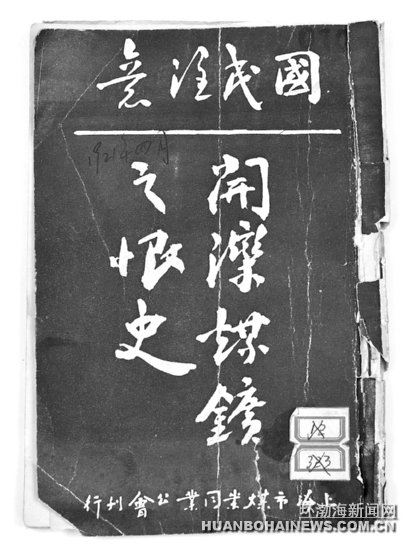 國民注意
1921年四月
開灤煤鑛
之恨史
上海市煤業同業公會刊行
环渤海新闻网
HUANBOHAINEWS.COM.CN